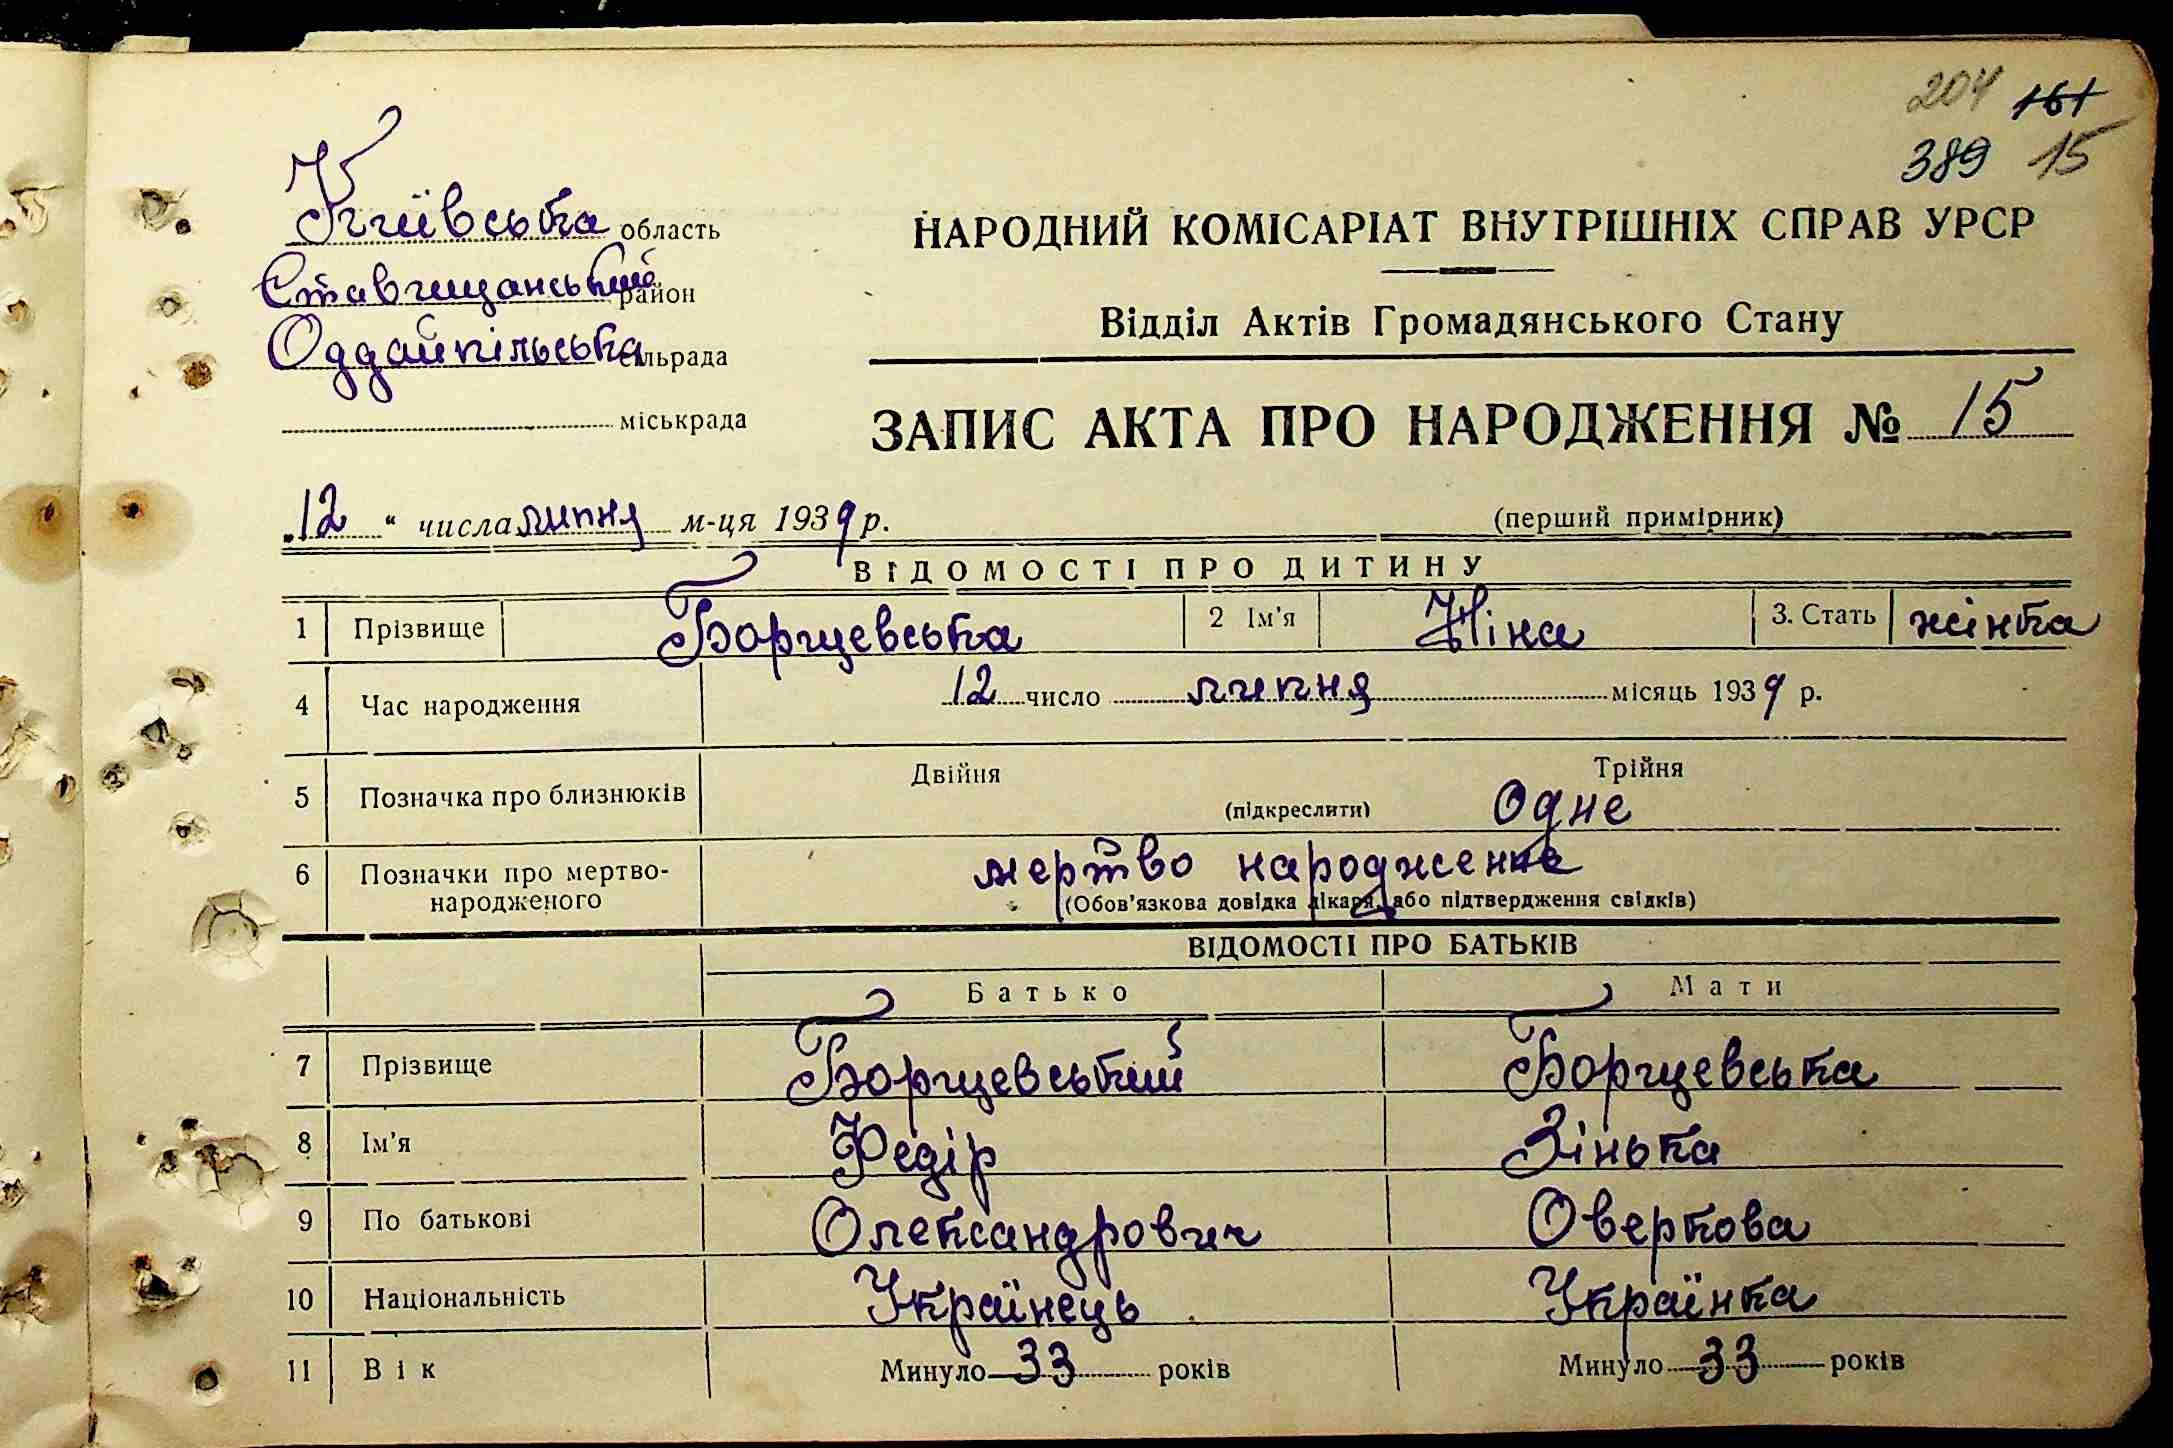 204 161
389 15
Київська область
Ставищанський район
Оддайпільська сільрада
міськрада
НАРОДНИЙ КОМІСАРІАТ ВНУТРІШНІХ СПРАВ УРСР
Відділ Актів Громадянського Стану
ЗАПИС АКТА ПРО НАРОДЖЕННЯ № 15
„12“ числа липня м-ця 1939 р.
(перший примірник)
ВІДОМОСТІ ПРО ДИТИНУ
1 Прізвище Борщевська 2 Ім'я Ніна 3. Стать жінка
4 Час народження 12 число липня місяць 1939 р.
5 Позначка про близнюків Двійня Трійня
(підкреслити) Одне
6 Позначки про мертво-народженого мертво народжене
(Обов'язкова довідка лікаря, або підтвердження свідків)
ВІДОМОСТІ ПРО БАТЬКІВ
Батько Мати
7 Прізвище Борщевський Борщевська
8 Ім'я Федір Зінька
9 По батькові Олександрович Оверкова
10 Національність Українець Українка
11 Вік Минуло 33 років Минуло 33 років